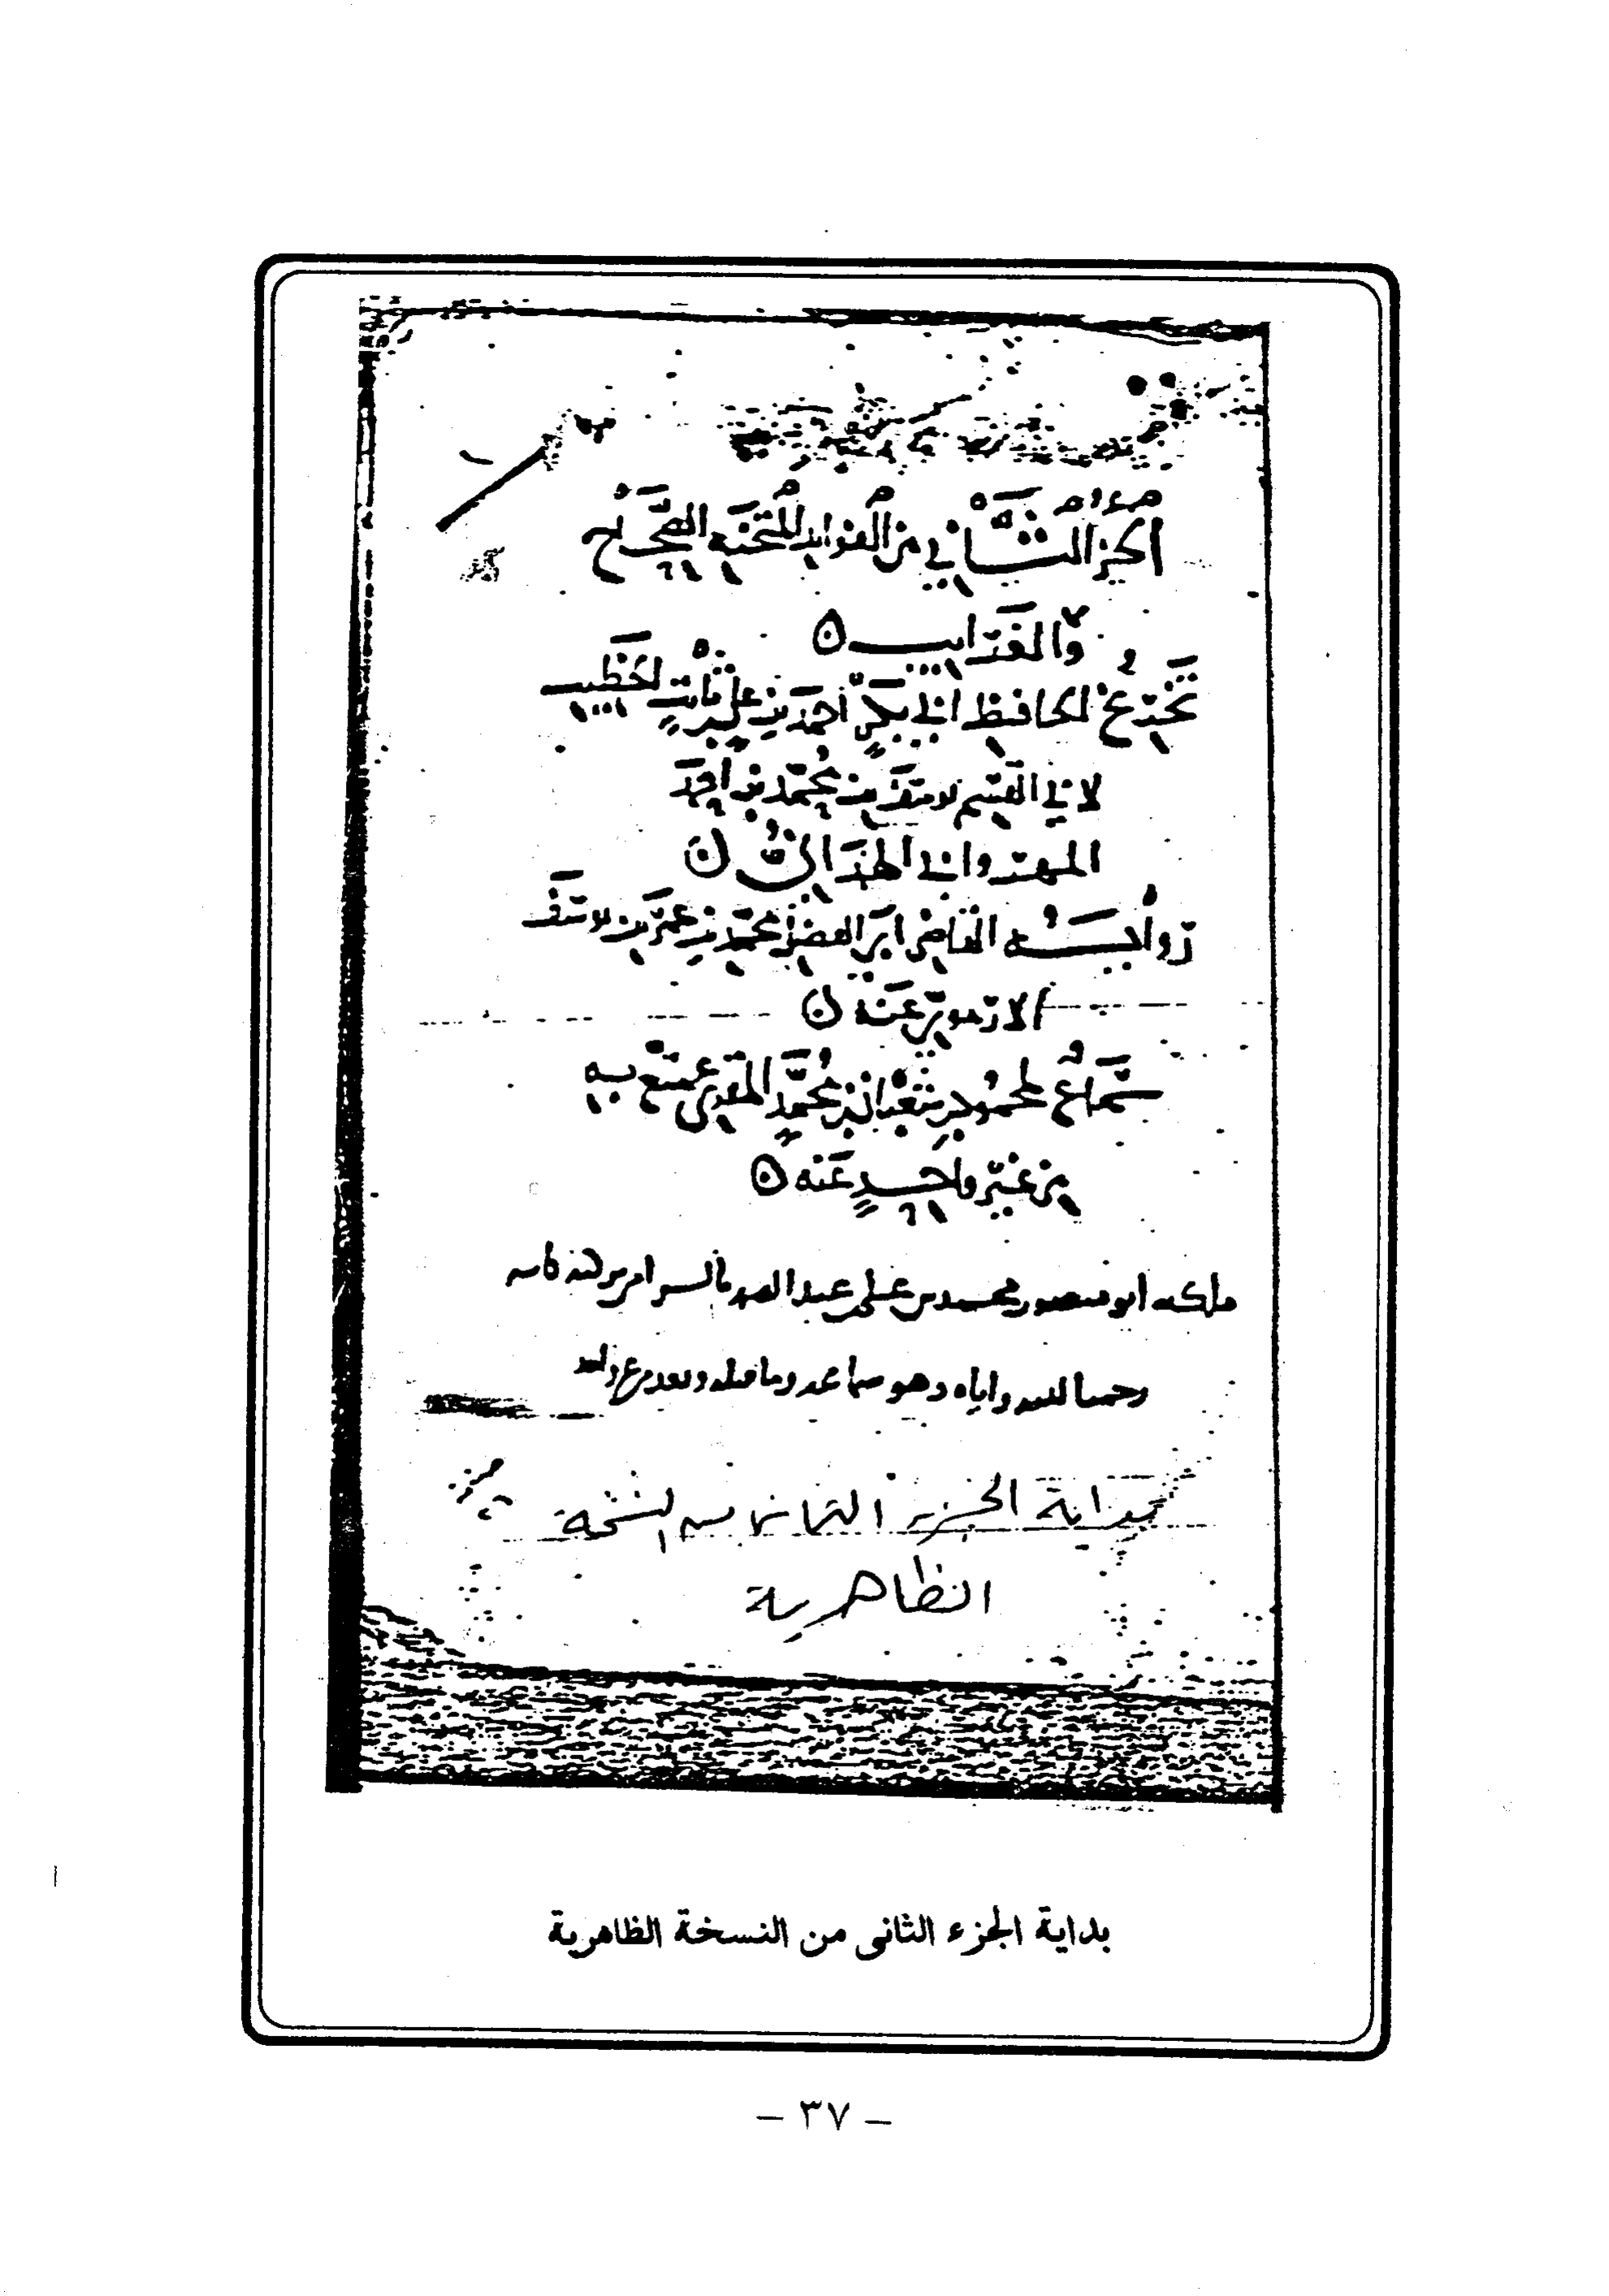 الجزء الثاني من الفوائد المنتخبة الصحاح
والغرايب
تخريج الحافظ ابي بكر أحمد بن علي بن ثابت الخطيب
لابي القسم يوسف بن محمد بن احمد
المهرواني الهمذاني
رواية القاضي ابي الفضل محمد بن عمر بن يوسف
الارموي عنه
سماع لمحمود بن شعبان بن محمد المقدسي
من غير واحد عنه
ملكه ابو منصور محمد بن علي بن عبد الصمد
رحمنا الله واياه وهو سماعه وما قبله وبعده
بداية الجزء الثاني من النسخة
الظاهرية
بداية الجزء الثانى من النسخة الظاهرية
– ٣٧ –